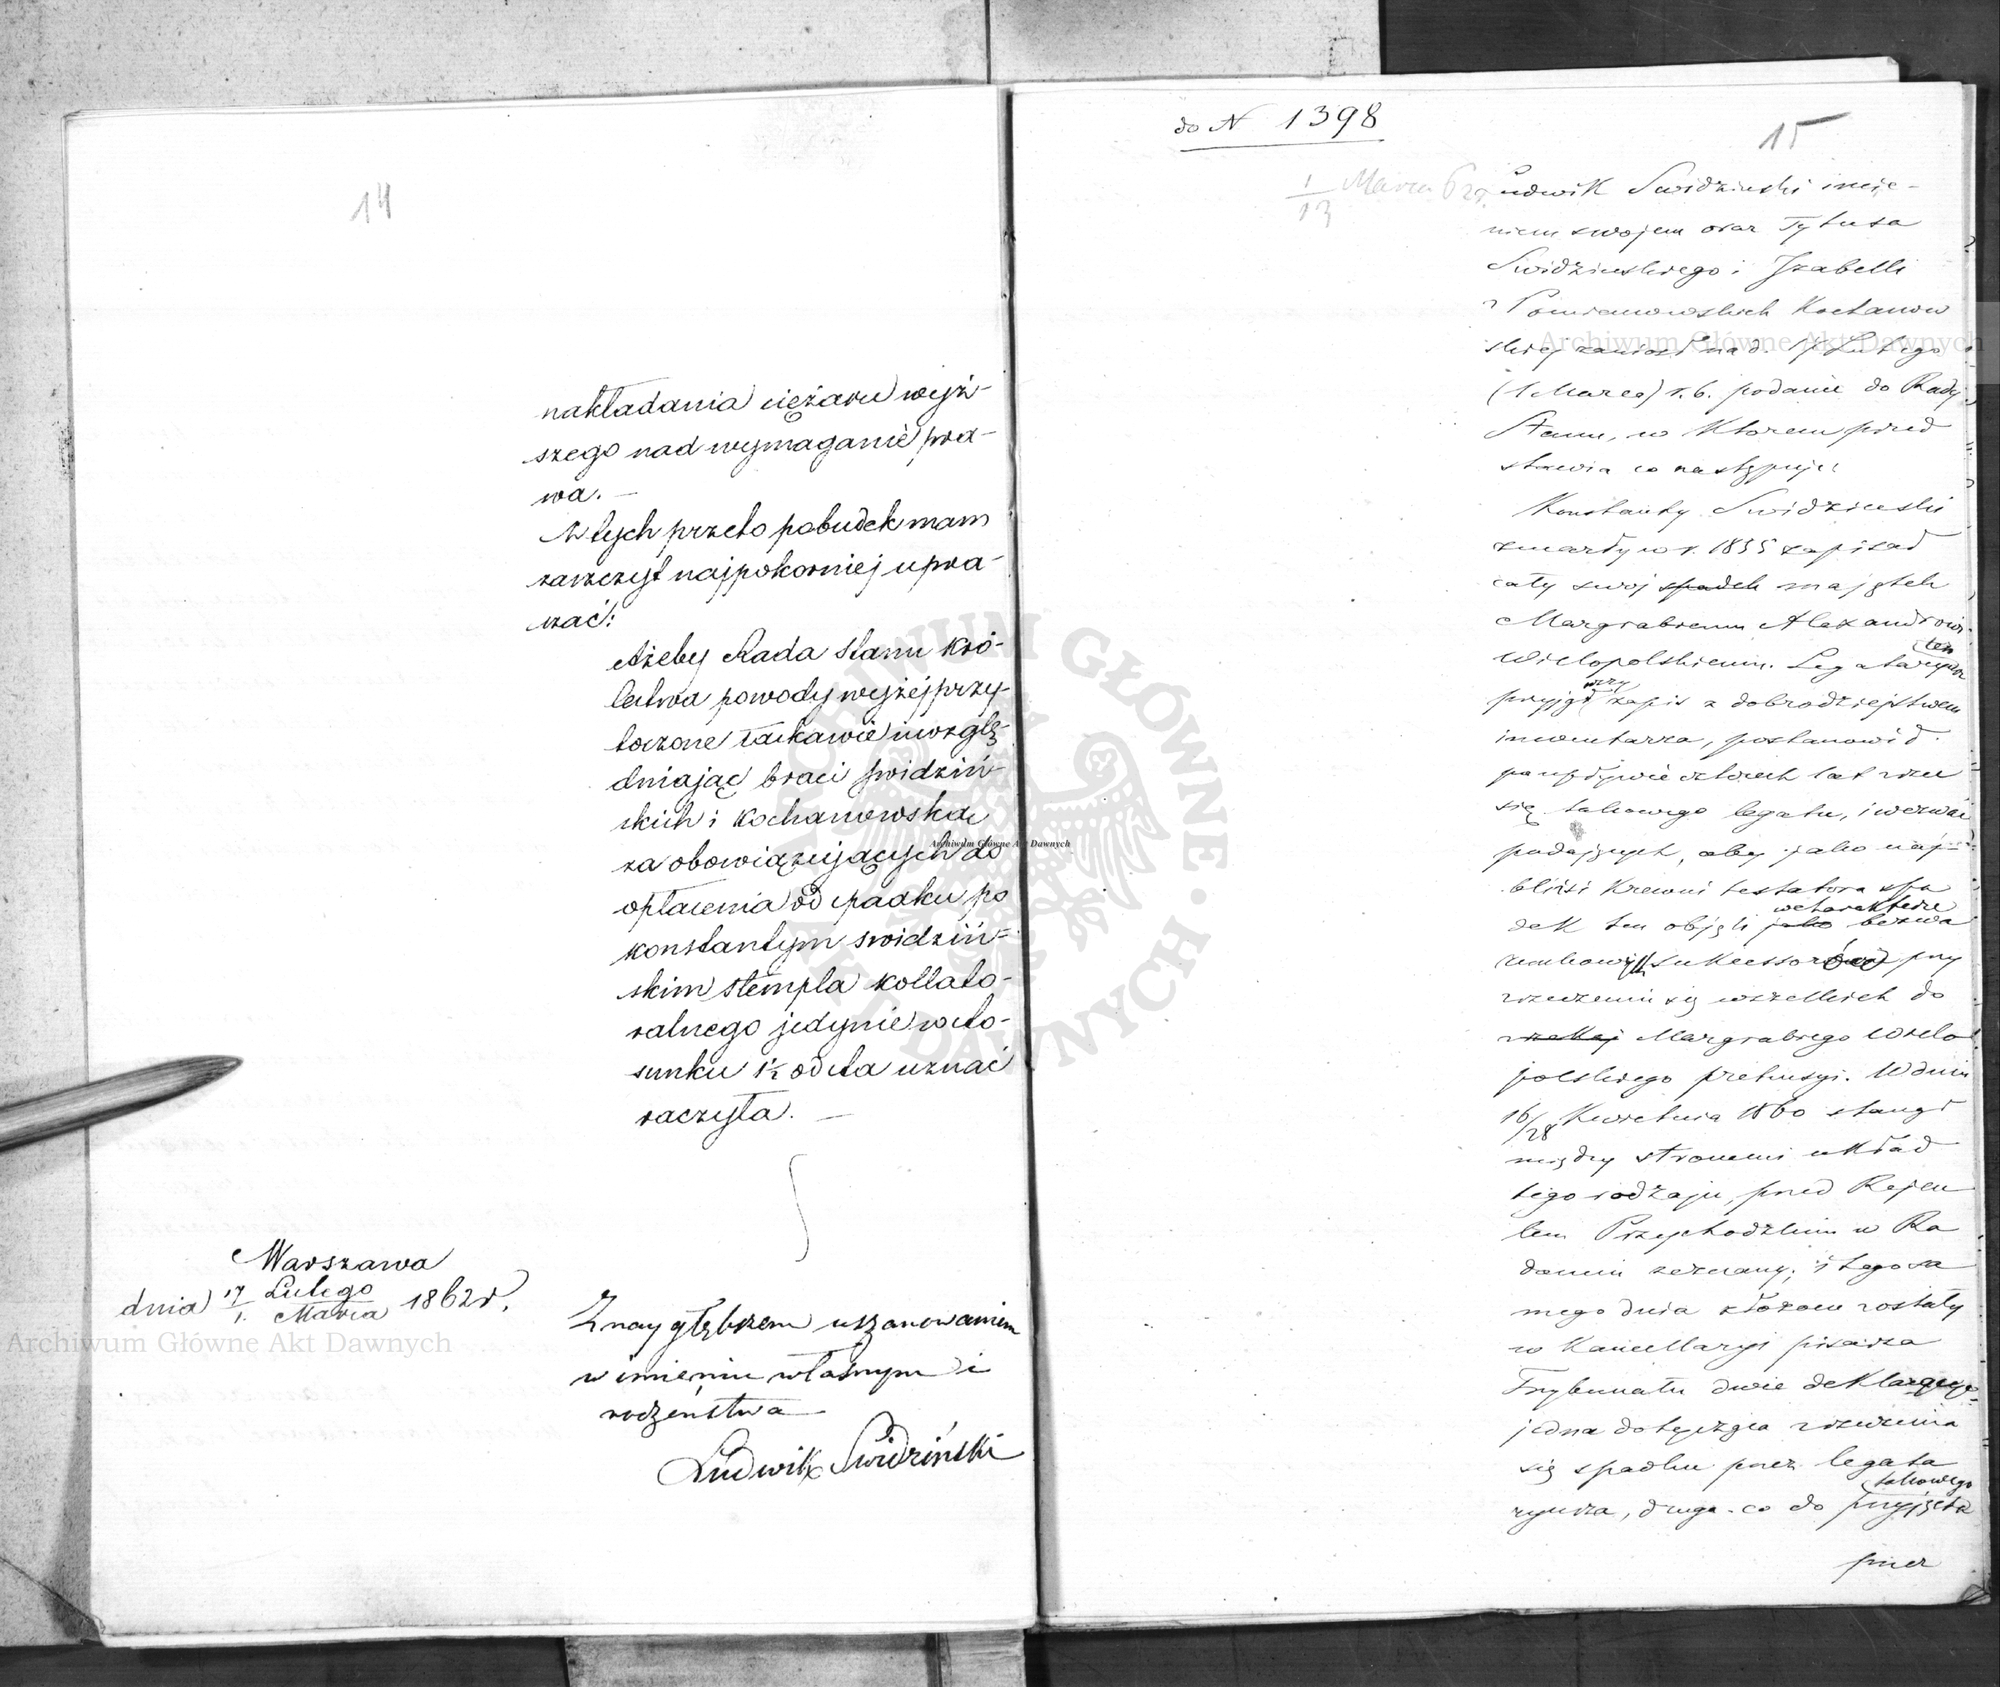 14
nakładania ciężaru wyż-
szego nad wymaganie pra-
wa. —
Z tych przeto pobudek mam
zaszczyt najpokorniej upra-
szać:
Ażeby Rada Stanu Kró-
lestwa powody wyżej przy-
toczone łaskawie uwzglę-
dniając braci Świdziń-
skich i Kochanowską
za obowiązujących do
opłacenia od spadku po
Konstantym Świdziń-
skim stempla kollate-
ralnego jedynie w sto-
sunku 1½ od sta uznać
raczyła. —
Warszawa
dnia 17 Lutego / 1. Marca 1862 r.
Z najgłębszem uszanowaniem
w imieniu własnym i
rodzeństwa
Ludwik Świdziński
do N 1398
15
1/13 Marca 62 r.
Ludwik Swidziński imie-
niem swojem oraz Tytusa
Swidzińskiego i Izabelli
z Pomianowskich Kochanow
skiej zaniosł na d. 17 Lutego
(1 Marca) r. b. podanie do Rady
Stanu, w ktorem przed
stawia co następuje:
Konstanty Swidziński
zmarły w r. 1855 zapisał
cały swoj spadek majątek
Margrabiemu Alexandrowi
Wielopolskiemu. Legataryusz
ten
przyjąwszy zapis z dobrodziejstwem
inwentarza, postanowił
po upływie cztерech lat zrzec
się takowego legatu, i wezwać
podających, aby jako naj-
bliżsi krewni testatora spa
dek ten objęli jako bezwa
w charakterze
runkowych sukcessorów przy
zrzeczeniu się wszelkich do
Margrabiego Wielo
polskiego pretensyi. W dniu
16/28 Kwietnia 1860 stanął
między stronami układ
tego rodzaju, przed Rejen
tem Przychodzkim w Ra
domiu zeznany; i tegoż sa
mego dnia złożone zostały
w Kancellaryi pisarza
Trybunału dwie deklaracye
jedna dotycząca zrzeczenia
się spadku przez legata
ryusza, druga co do przyjęcia
takowego
przez
Archiwum Główne Akt Dawnych
Archiwum Główne Akt Dawnych
Archiwum Główne Akt Dawnych
ARCHIWUM GŁÓWNE · AKT DAWNYCH ·